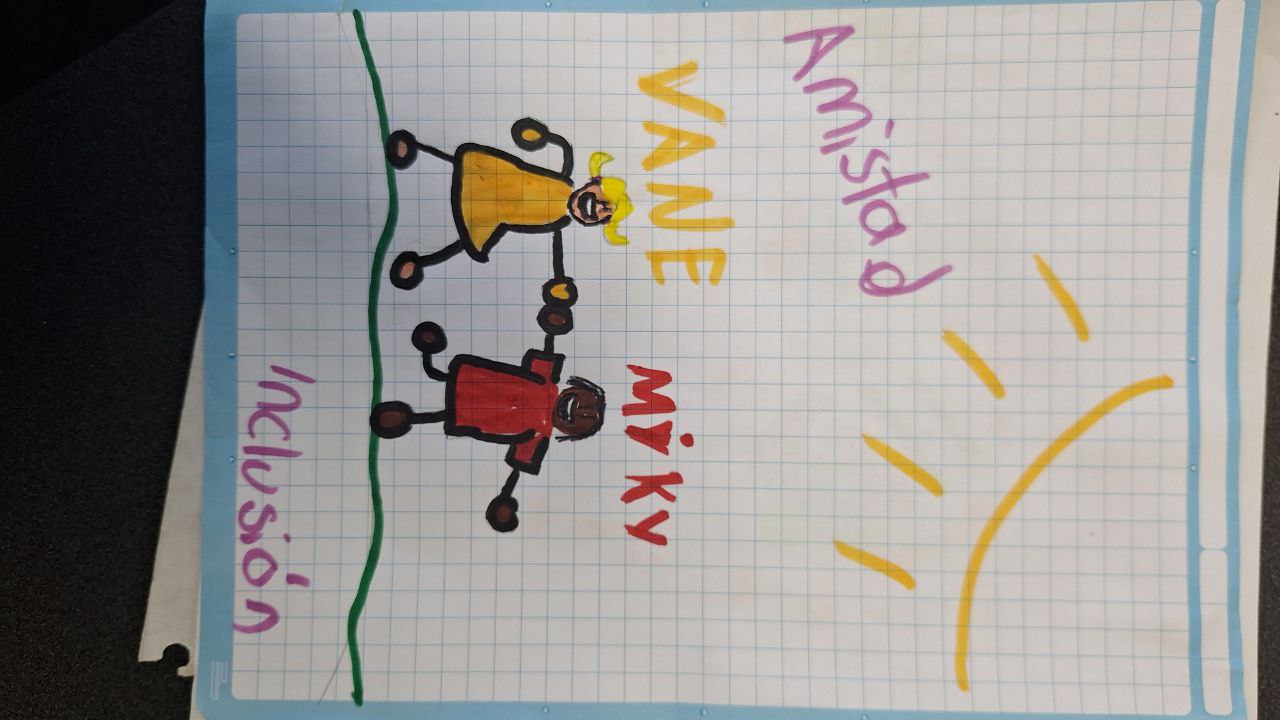 Amistad
VANE
MiKY
Inclusión